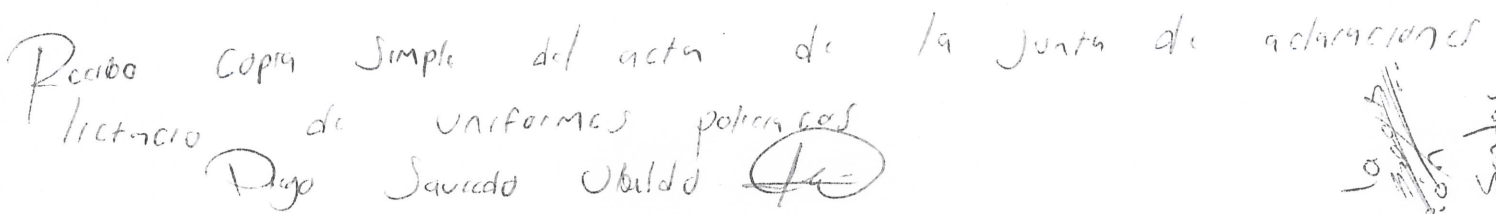 Recibo copia simple del acta de la junta de aclaraciones
lictacio de uniformes policiacos
Diego Saucedo Ubaldo